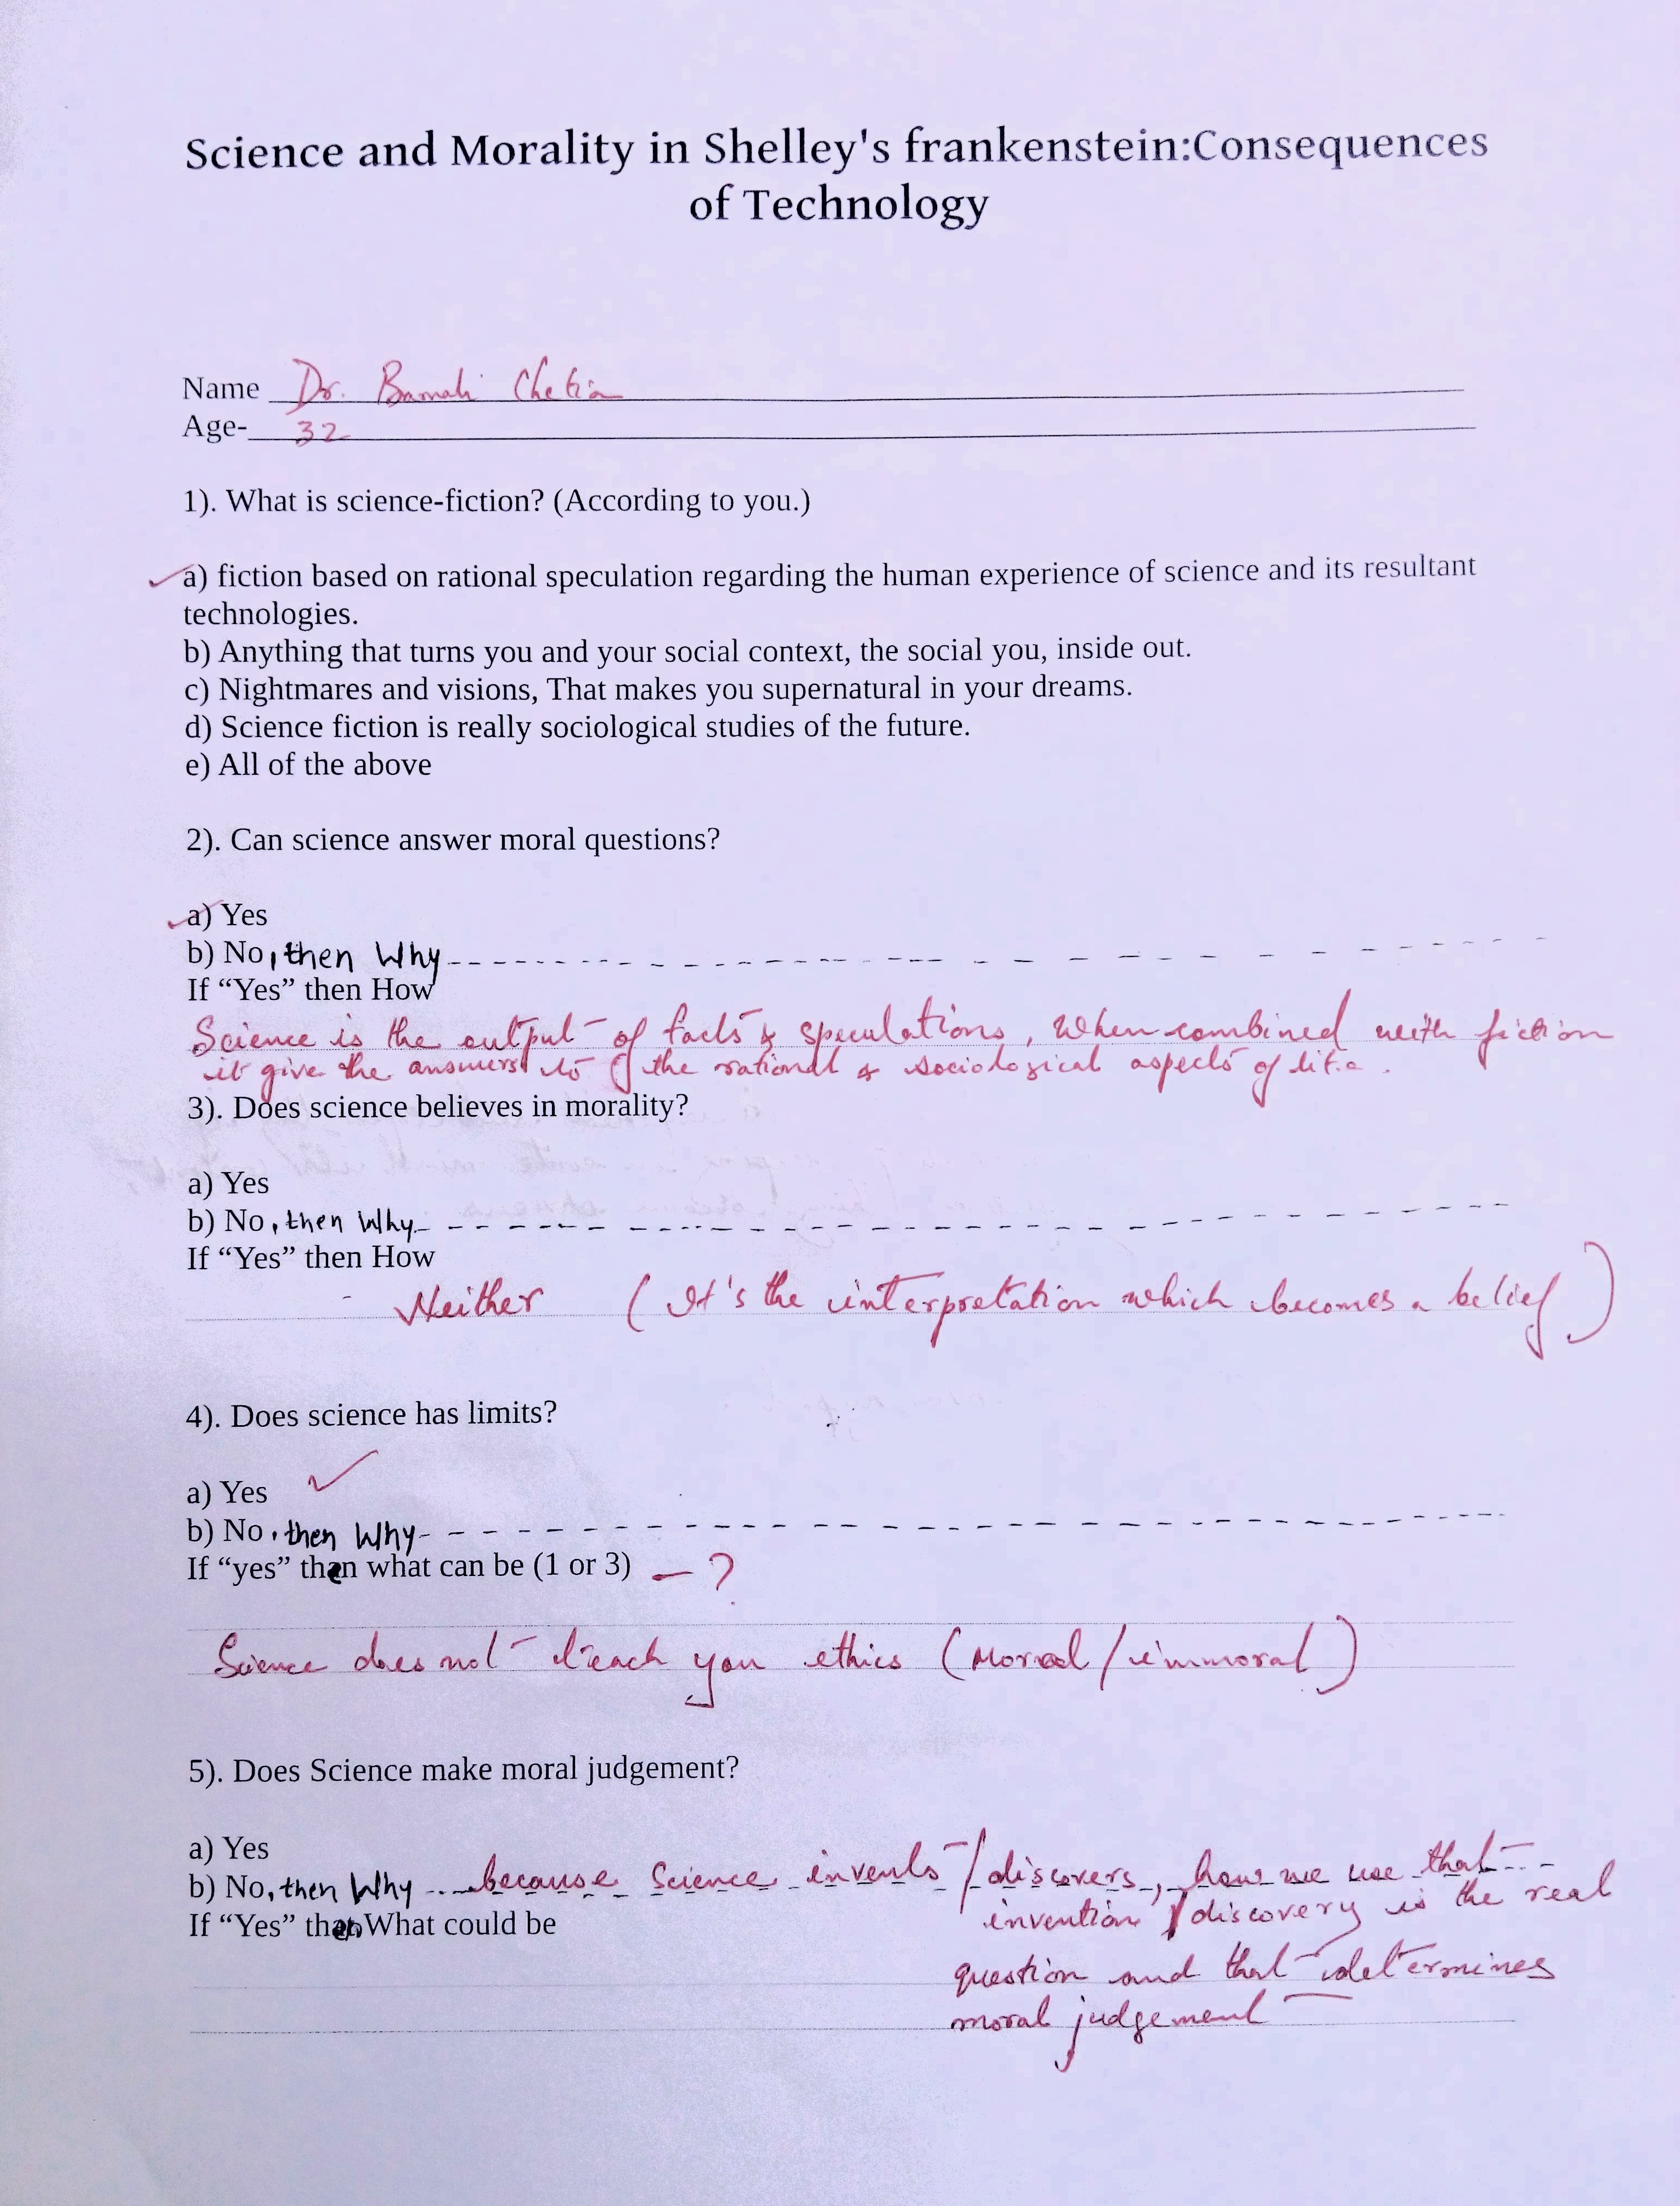 Science and Morality in Shelley's frankenstein:Consequences
of Technology
Name Dr. Chetia
Age- 32
1). What is science-fiction? (According to you.)
a) fiction based on rational speculation regarding the human experience of science and its resultant
technologies.
b) Anything that turns you and your social context, the social you, inside out.
c) Nightmares and visions, That makes you supernatural in your dreams.
d) Science fiction is really sociological studies of the future.
e) All of the above
2). Can science answer moral questions?
a) Yes
b) No, then Why
If “Yes” then How
Science is the output of facts & speculations, when combined with fiction
it give the answers to the rational & sociological aspects of life.
3). Does science believes in morality?
a) Yes
b) No, then Why
If “Yes” then How
Neither (It's the interpretation which becomes a belief)
4). Does science has limits?
a) Yes
b) No, then Why
If “yes” then what can be (1 or 3) — ?
Science does not teach you ethics (Moral/immoral)
5). Does Science make moral judgement?
a) Yes
b) No, then Why because Science invents/discovers, how we use that
invention/discovery is the real
If “Yes” then, What could be
question and that determines
moral judgement